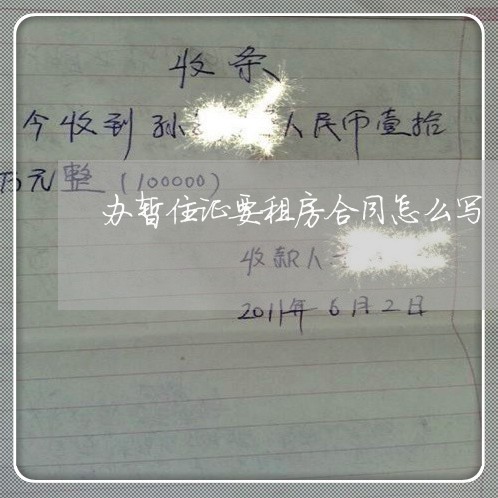 收条
今收到孙 人民币壹拾
万元整(100000)
办暂住证要租房合同怎么写
收款人
2011年6月2日